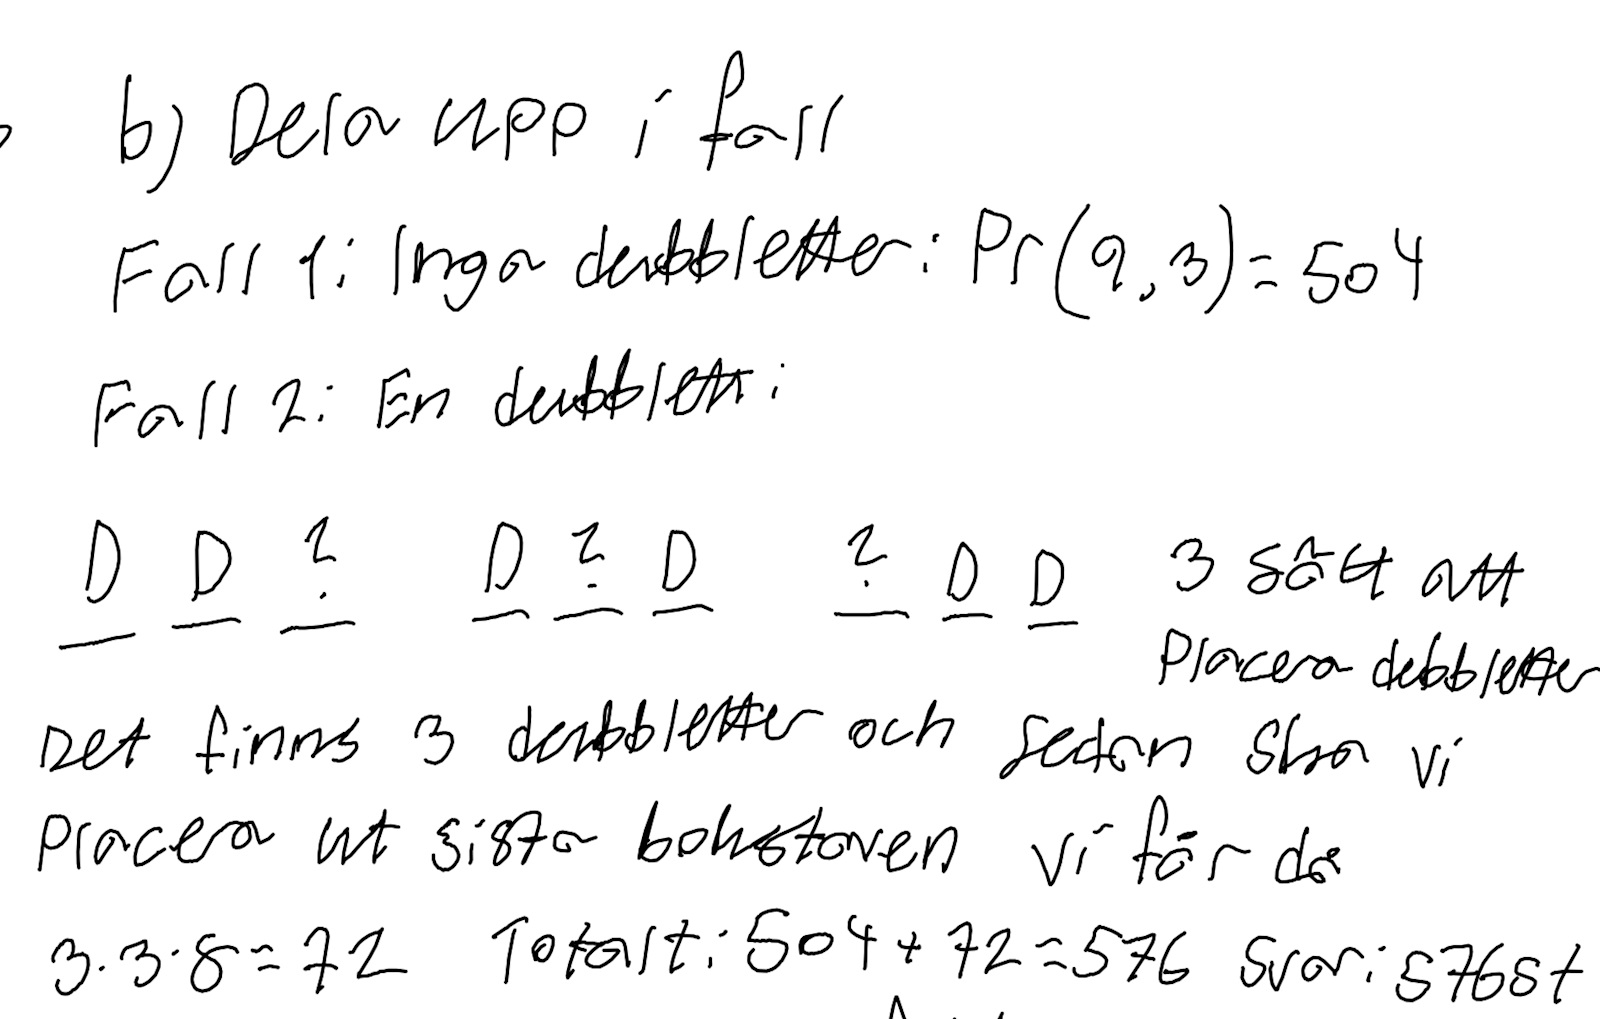 b) Dela upp i fall
Fall 1: Inga dubbletter: Pr(9,3)=504
Fall 2: En dubblett:
D D ? D ? D ? D D 3 sätt att
placera debbletter
Det finns 3 dubbletter och sedan ska vi
placera ut sista bokstaven vi får då
3·3·8=72 Totalt: 504+72=576 Svar: 576st